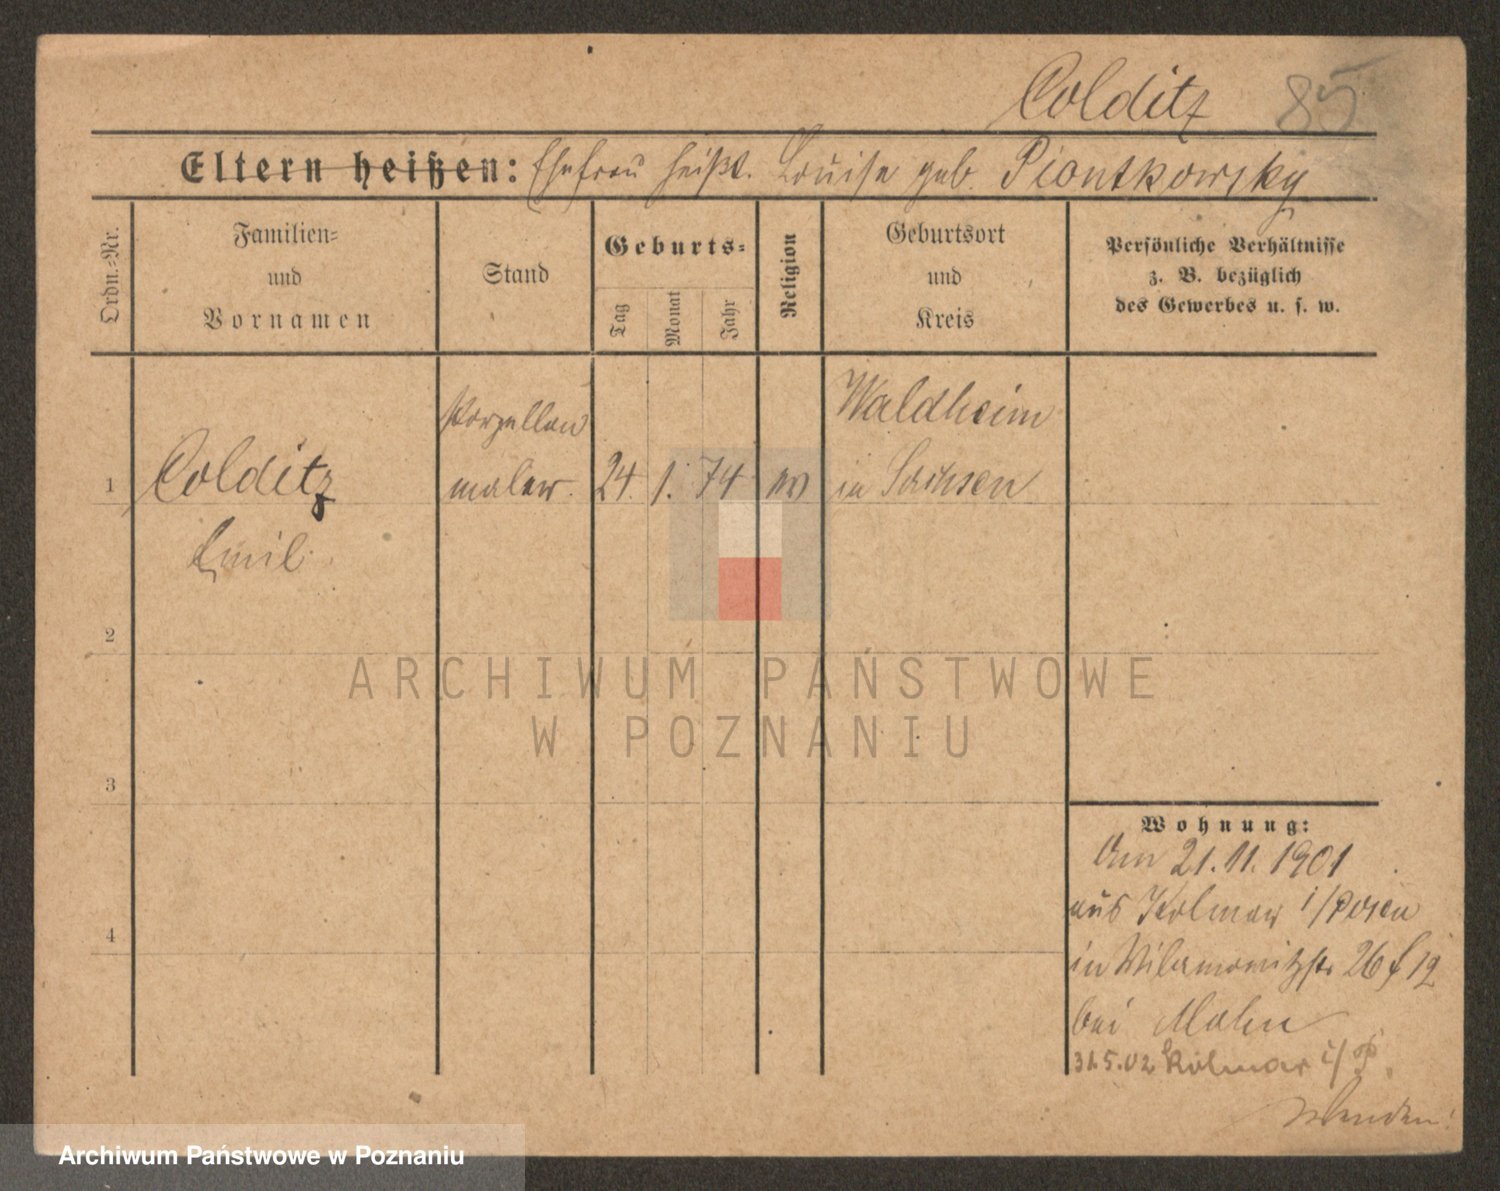 Colditz 85
Eltern heißen: Ehefrau heißt. Louise geb. Piontkowsky
Ordn.-Nr.
Familien-
und
Vornamen
Stand
Geburts-
Tag
Monat
Jahr
Religion
Geburtsort
und
Kreis
Persönliche Verhältnisse
z. B. bezüglich
des Gewerbes u. s. w.
1
Colditz
Emil
Porzellan
maler
24. 1. 74
Waldheim
in Sachsen
2
3
4
Wohnung:
Am 21.11.1901
aus Kolmar i/Posen
in Wilamowitzstr 26
bei Mohn
31.5.02 Kolmar i/P.
Wenden!
ARCHIWUM PAŃSTWOWE
W POZNANIU
Archiwum Państwowe w Poznaniu